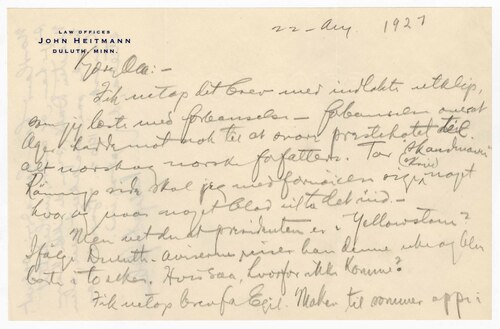 LAW OFFICES
JOHN HEITMANN
DULUTH, MINN.
22 - Aug 1927
Kjære Ole: -
Fik netop det brev med indlagte utklip,
som jeg læste med forbauselse - forbauselsen over at
Ager hadde mot nok til at svare prestehatet til
alt norsk og norsk forfattere. Tar Skandinaven
Rønning sik skal jeg med fornøielse sige noget
hvor og naar noget blad vil ta det ind. -
Men vet du at presidenten er i Yellowstone?
Ifølge Duluth aviserne reiser han denne uke og blir
borte i to uker. Hvis saa, hvorfor ikke komme?
Fik netop brev fra Egil. Maken til sommer oppi